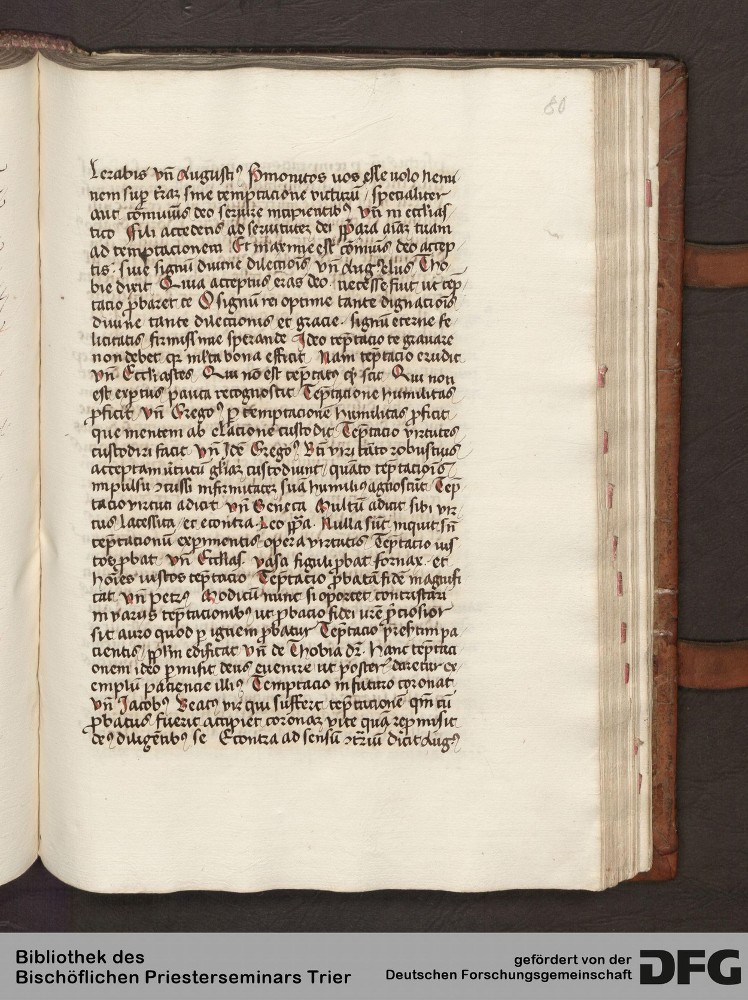 80
lerabis vn̄ Augustiꝰ Premonitos uos esse uolo nemi
nem suꝑ t̄rā sine temptacione victurū / specialiter
aut cōmuniꝰ deo seruire incipientibꝰ vn̄ in eccl̄ias
tico Fili accedens ad seruitutem dei p̄para aīaz tuam
ad temptacionem Et maxime est cōmuniꝰ deo accep
tis siue signū diuine dilectiōis vn̄ Angelus Tho
bie dixit Quia acceptus eras deo necesse fuit ut tēp
tacio ꝓbaret te O signū rei optime tante dignaciōis
diuine tante dilectionis et gracie signū eterne fe
licitatis firmissime sperande Ideo tēptacio te grauare
non debet qz ml̄ta bona efficit Nam tēptacio erudit
vn̄ Eccl̄iastes Qui nō est tēptatꝰ qd̄ scit Qui non
est exp̄tus pauca recognoscit Tēptacione humilitas
ꝓficit vn̄ Gregoꝰ ꝑ temptacione humilitas ꝓficit
que mentem ab elacione custodit Tēptacio virtutes
custodiri facit vn̄ Idē Gregoꝰ Bn̄ viri tāto robustius
acceptam v̄tutū gl̄iaz custodiunt quāto tēptaciōis
impulsu ꝯcussi infirmitatez suā humiliꝰ agnoscūt Tēp
tacio virtuti adicit vn̄ Seneca Multū adicit sibi vir
tus lacessita et econtra Leo p̄pa Nulla sūt inquit sn̄
tēptacionū exꝑimentis opera virtutis Tēptacio ius
tos ꝓbat vn̄ Eccl̄ias vasa figuli ꝓbat fornax et
hoīes iustos tēptacio Tēptacio ꝓbatā fidē magnifi
cat vn̄ petrꝰ Modicū nunc si oportet contristari
in varijs tēptacionibꝰ ut ꝓbacio fidei ur̄e p̄ciosior
sit auro quod ꝑ ignem ꝓbatur Tēptacio p̄sertim pa
cientis pp̄lm edificat vn̄ de Thobia dr̄ Hanc tēptaci
onem ideo ꝑmisit deus euenire ut posteris daretur ex
emplū paciencie illiꝰ Temptacio in futuro coronat
vn̄ Jacobꝰ Beatꝰ vir qui suffert tēptacionē qm̄ cū
ꝓbatus fuerit accipiet coronaz vite quā repromisit
deꝰ diligētibꝰ se Econtra ad sensū ꝯtrariū dicit Augꝰ
Bibliothek des
Bischöflichen Priesterseminars Trier
gefördert von der
Deutschen Forschungsgemeinschaft
DFG